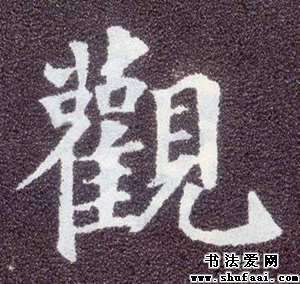 觀
书法爱网
www.shufaai.com